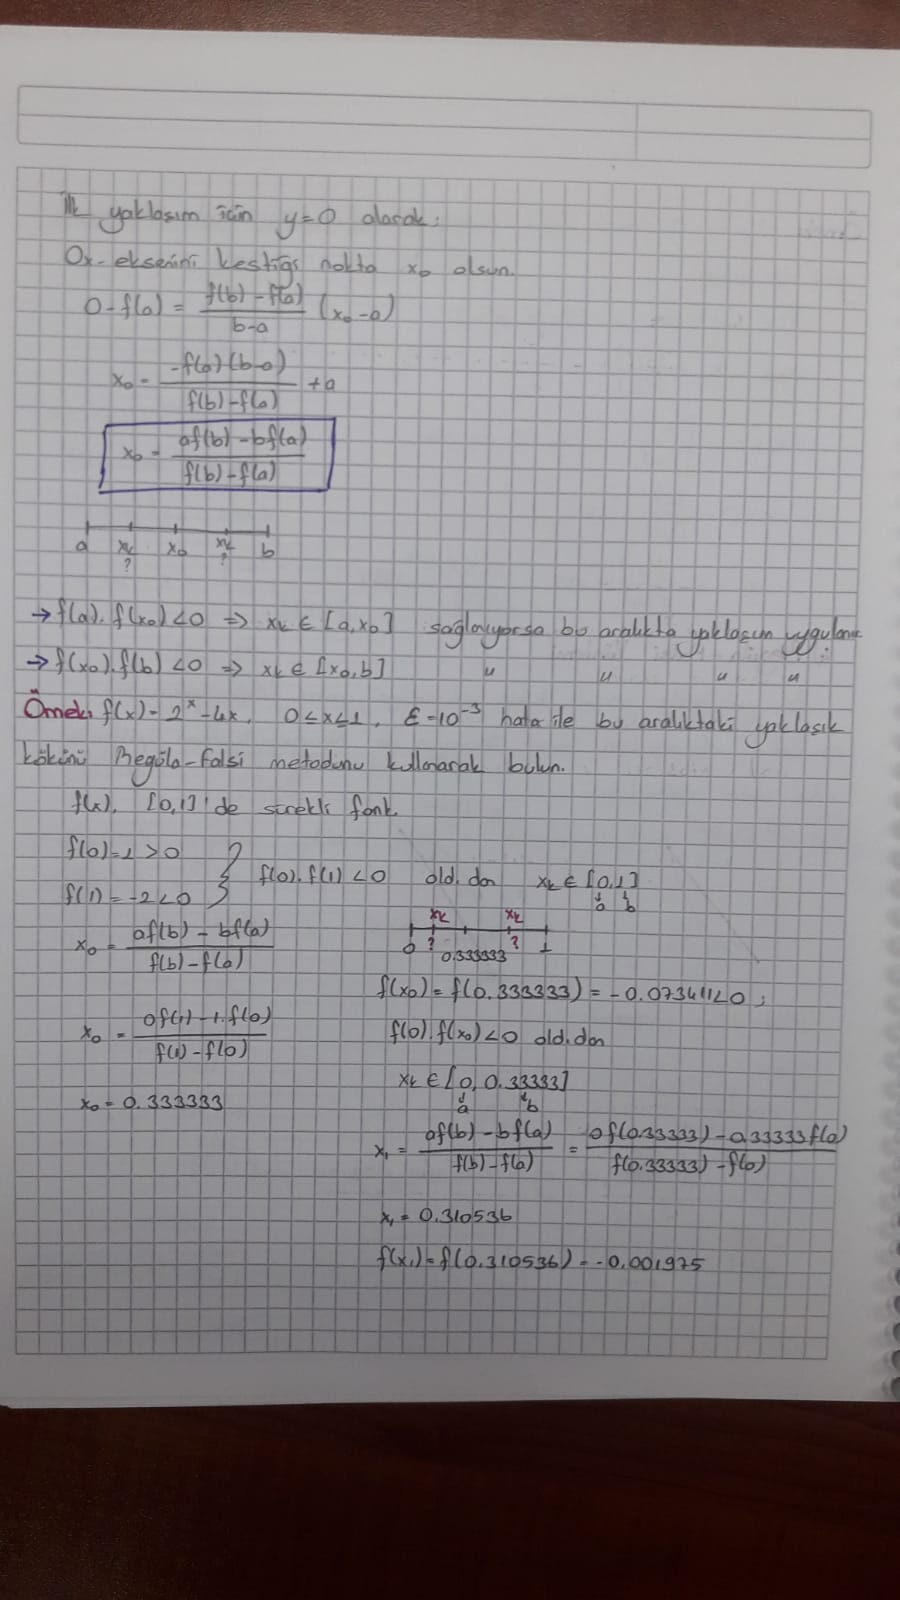 İlk yaklaşım için y=0 olarak;
Ox-eksenini kestiği nokta x₀ olsun.
0-f(a) = f(b)-f(a) / b-a (x₀-a)
x₀ = -f(a)(b-a) / f(b)-f(a) +a
x₀ = af(b)-bf(a) / f(b)-f(a)
a xₖ x₀ xₖ b
? ?
→ f(a).f(x₀)<0 => xₖ ∈ [a,x₀] sağlanıyorsa bu aralıkta yaklaşım uygulanır
→ f(x₀).f(b)<0 => xₖ ∈ [x₀,b] " " " "
Örnek: f(x)= 2ˣ-4x, 0≤x≤1, ε=10⁻³ hata ile bu aralıktaki yaklaşık
kökünü Regula-Falsi metodunu kullanarak bulun.
f(x), [0,1]'de sürekli fonk.
f(0)=1>0
f(1)=-2<0
f(0).f(1)<0 old.dan xₖ ∈ [0,1]
a b
x₀ = af(b)-bf(a) / f(b)-f(a)
x₀ = 0f(1)-1.f(0) / f(1)-f(0)
x₀ = 0.333333
xₖ xₖ
0 ? 0.333333 ? 1
f(x₀)=f(0.333333)=-0.073411<0;
f(0).f(x₀)<0 old.dan
xₖ ∈ [0, 0.33333]
a b
x₁ = af(b)-bf(a) / f(b)-f(a) = 0f(0.33333)-0.33333f(0) / f(0.33333)-f(0)
x₁ = 0.310536
f(x₁)=f(0.310536)=-0.001975